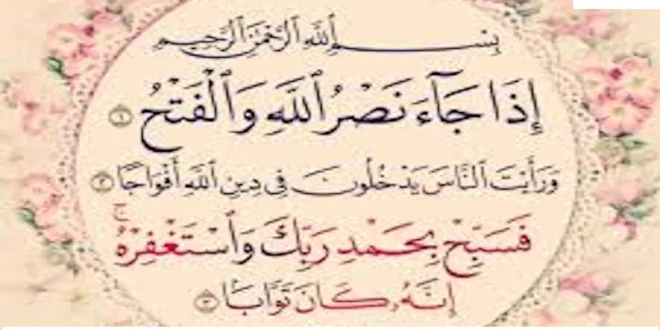 بِسْمِ اللَّهِ الرَّحْمَٰنِ الرَّحِيمِ
إِذَا جَآءَ نَصْرُ ٱللَّهِ وَٱلْفَتْحُ ١
وَرَأَيْتَ النَّاسَ يَدْخُلُونَ فِي دِينِ اللَّهِ أَفْوَاجًا ٢
فَسَبِّحْ بِحَمْدِ رَبِّكَ وَٱسْتَغْفِرْهُ ۚ
إِنَّهُۥ كَانَ تَوَّابًا ٣